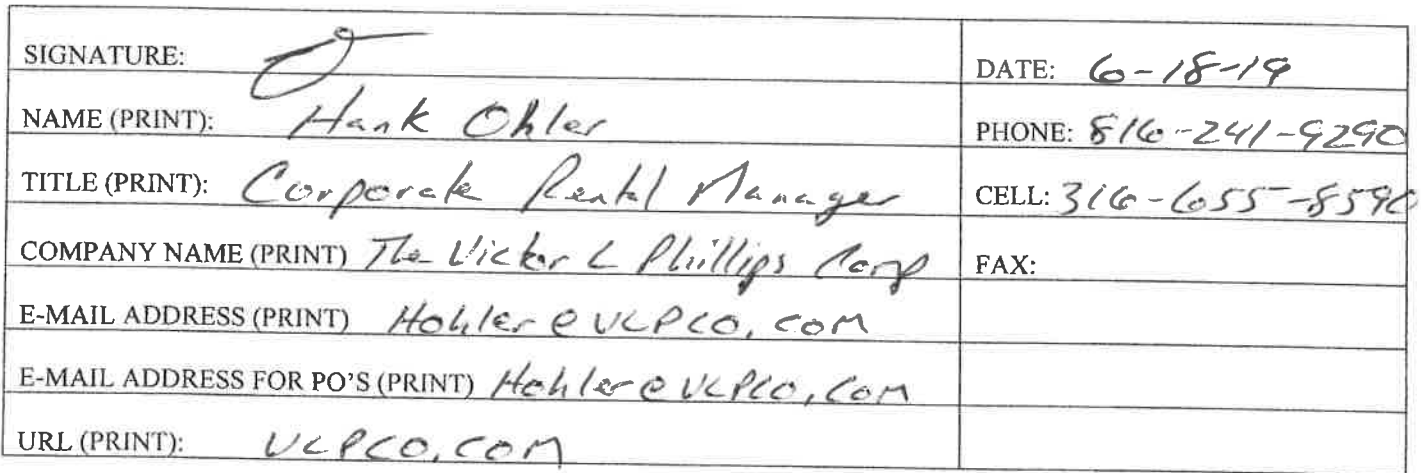 SIGNATURE:
DATE: 6-18-19
NAME (PRINT): Hank Ohler
PHONE: 816-241-9290
TITLE (PRINT): Corporate Rental Manager
CELL: 316-655-8590
COMPANY NAME (PRINT) The Victor L Phillips Comp
FAX:
E-MAIL ADDRESS (PRINT) Hohler@VLPCO.COM
E-MAIL ADDRESS FOR PO'S (PRINT) Hohler@VLPCO.COM
URL (PRINT): VLPCO.COM